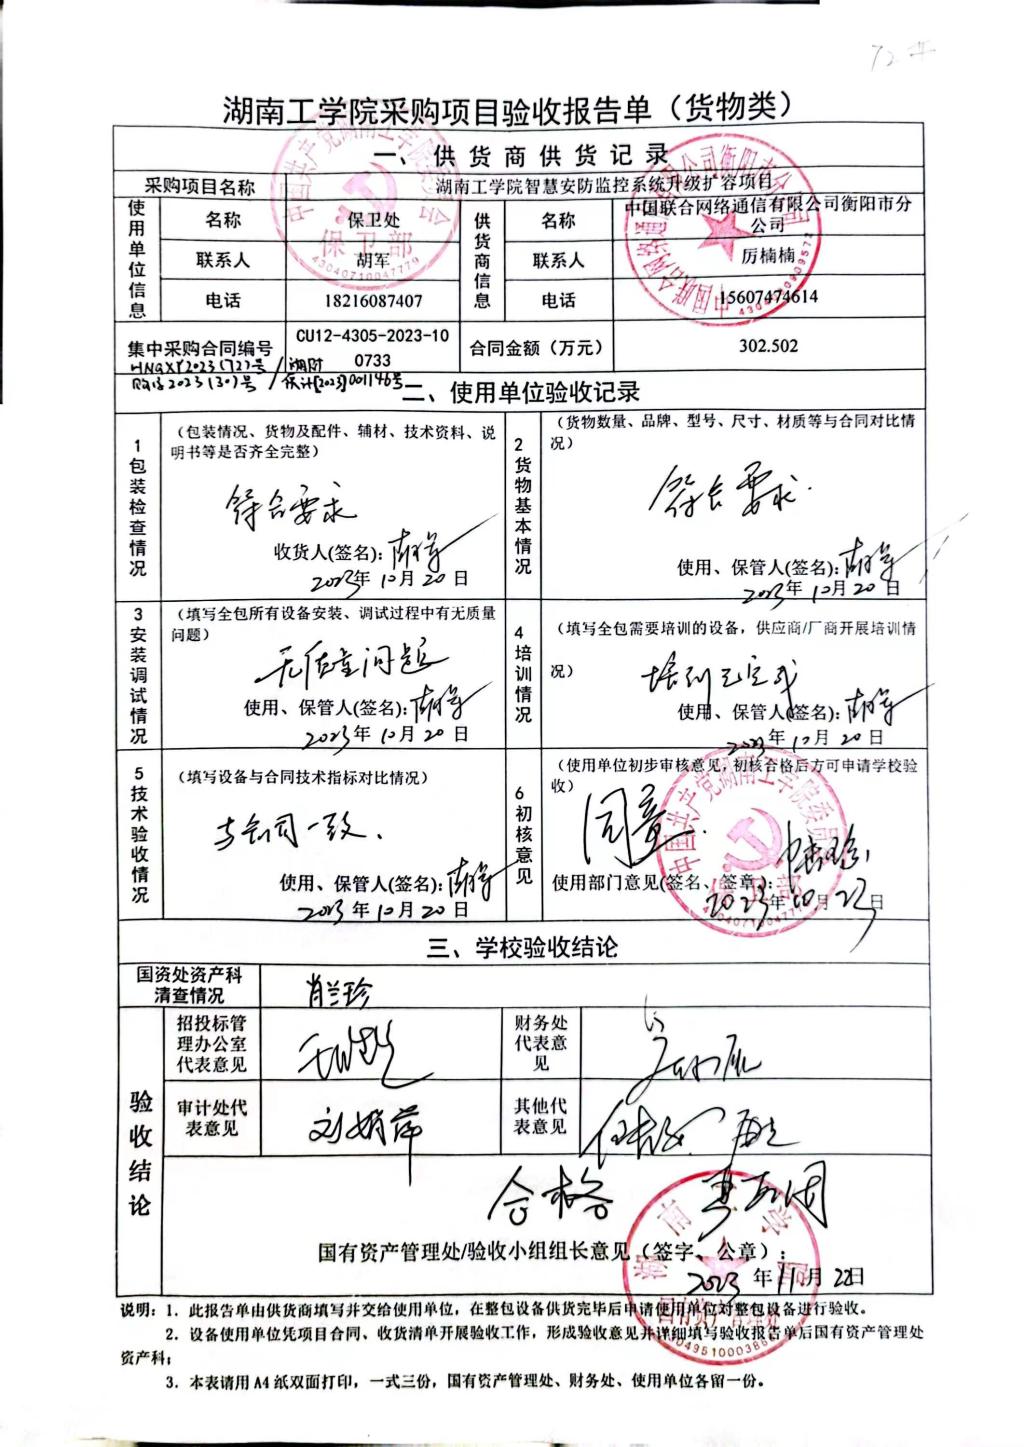 72#
湖南工学院采购项目验收报告单（货物类）
一、供货商供货记录
采购项目名称 湖南工学院智慧安防监控系统升级扩容项目
使用单位信息
名称 保卫处
联系人 胡军
电话 18216087407
供货商信息
名称 中国联合网络通信有限公司衡阳市分公司
联系人 厉楠楠
电话 15607474614
集中采购合同编号
CU12-4305-2023-10
0733
HNGXY2023(72)号
2023(30)号
[2023]001146号
合同金额（万元） 302.502
二、使用单位验收记录
1包装检查情况
（包装情况、货物及配件、辅材、技术资料、说
明书等是否齐全完整）
符合要求
收货人(签名): 胡军
2023年10月20日
2货物基本情况
（货物数量、品牌、型号、尺寸、材质等与合同对比情
况）
符合要求.
使用、保管人(签名): 胡军
2023年10月20日
3安装调试情况
（填写全包所有设备安装、调试过程中有无质量
问题）
无质量问题
使用、保管人(签名): 胡军
2023年10月20日
4培训情况
（填写全包需要培训的设备，供应商/厂商开展培训情
况）
培训已完成
使用、保管人(签名): 胡军
2023年10月20日
5技术验收情况
（填写设备与合同技术指标对比情况）
与合同一致.
使用、保管人(签名): 胡军
2023年10月20日
6初核意见
（使用单位初步审核意见，初核合格后方可申请学校验
收）
同意.
使用部门意见(签名、签章):
2023年10月23日
三、学校验收结论
国资处资产科
清查情况
肖兰珍
验收结论
招投标管
理办公室
代表意见
财务处
代表意
见
审计处代
表意见
刘娟萍
其他代
表意见
合格
国有资产管理处/验收小组组长意见（签字、公章）：
2023年11月22日
说明：1、此报告单由供货商填写并交给使用单位，在整包设备供货完毕后申请使用单位对整包设备进行验收。
2、设备使用单位凭项目合同、收货清单开展验收工作，形成验收意见并详细填写验收报告单后国有资产管理处
资产科；
3、本表请用A4纸双面打印，一式三份，国有资产管理处、财务处、使用单位各留一份。
中国共产党湖南工学院委员会
保卫部
43040710047779
中国联合网络通信有限公司衡阳市分公司
中国共产党湖南工学院委员会
保卫部
43040710047779
湖南工学院
国有资产管理处